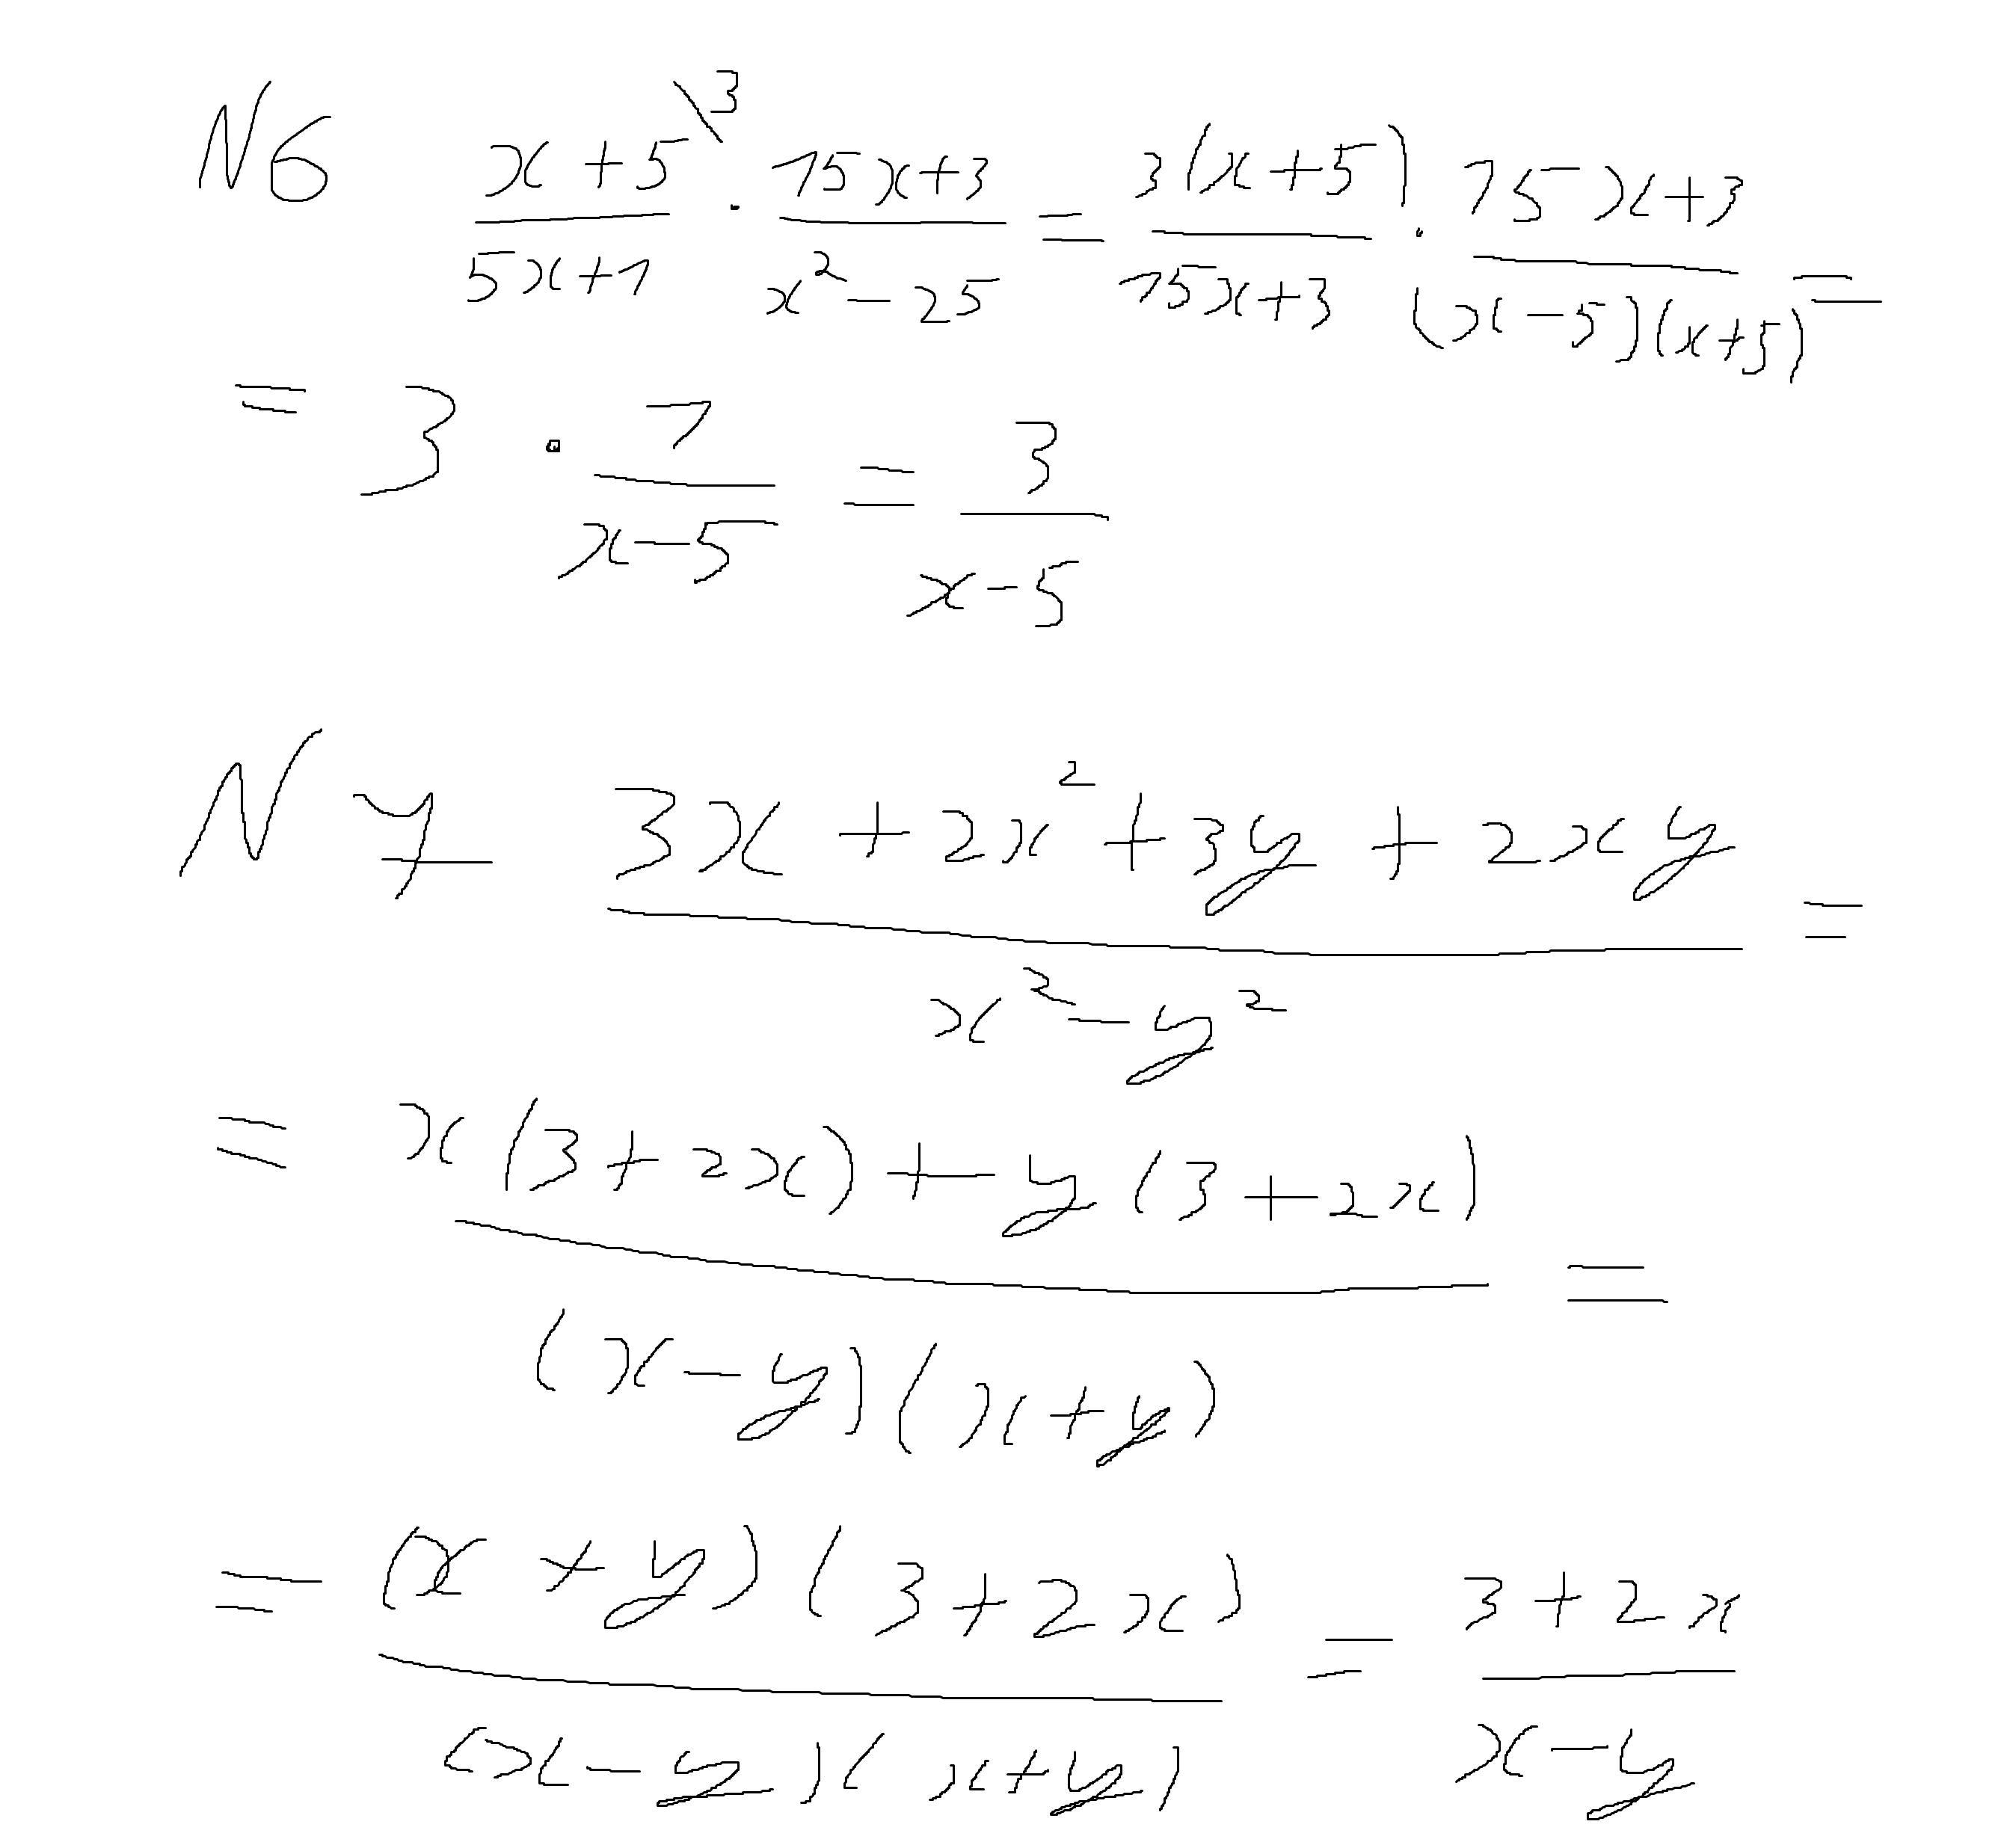 N6 \frac{x+5^{\backslash 3}}{5x+1} \cdot \frac{15x+3}{x^2-25} = \frac{3(x+5)}{15x+3} \cdot \frac{15x+3}{(x-5)(x+5)} =
= 3 \cdot \frac{1}{x-5} = \frac{3}{x-5}
N7 \frac{3x+2x^2+3y+2xy}{x^2-y^2} =
= \frac{x(3+2x)+y(3+2x)}{(x-y)(x+y)} =
= \frac{(x+y)(3+2x)}{(x-y)(x+y)} = \frac{3+2x}{x-y}